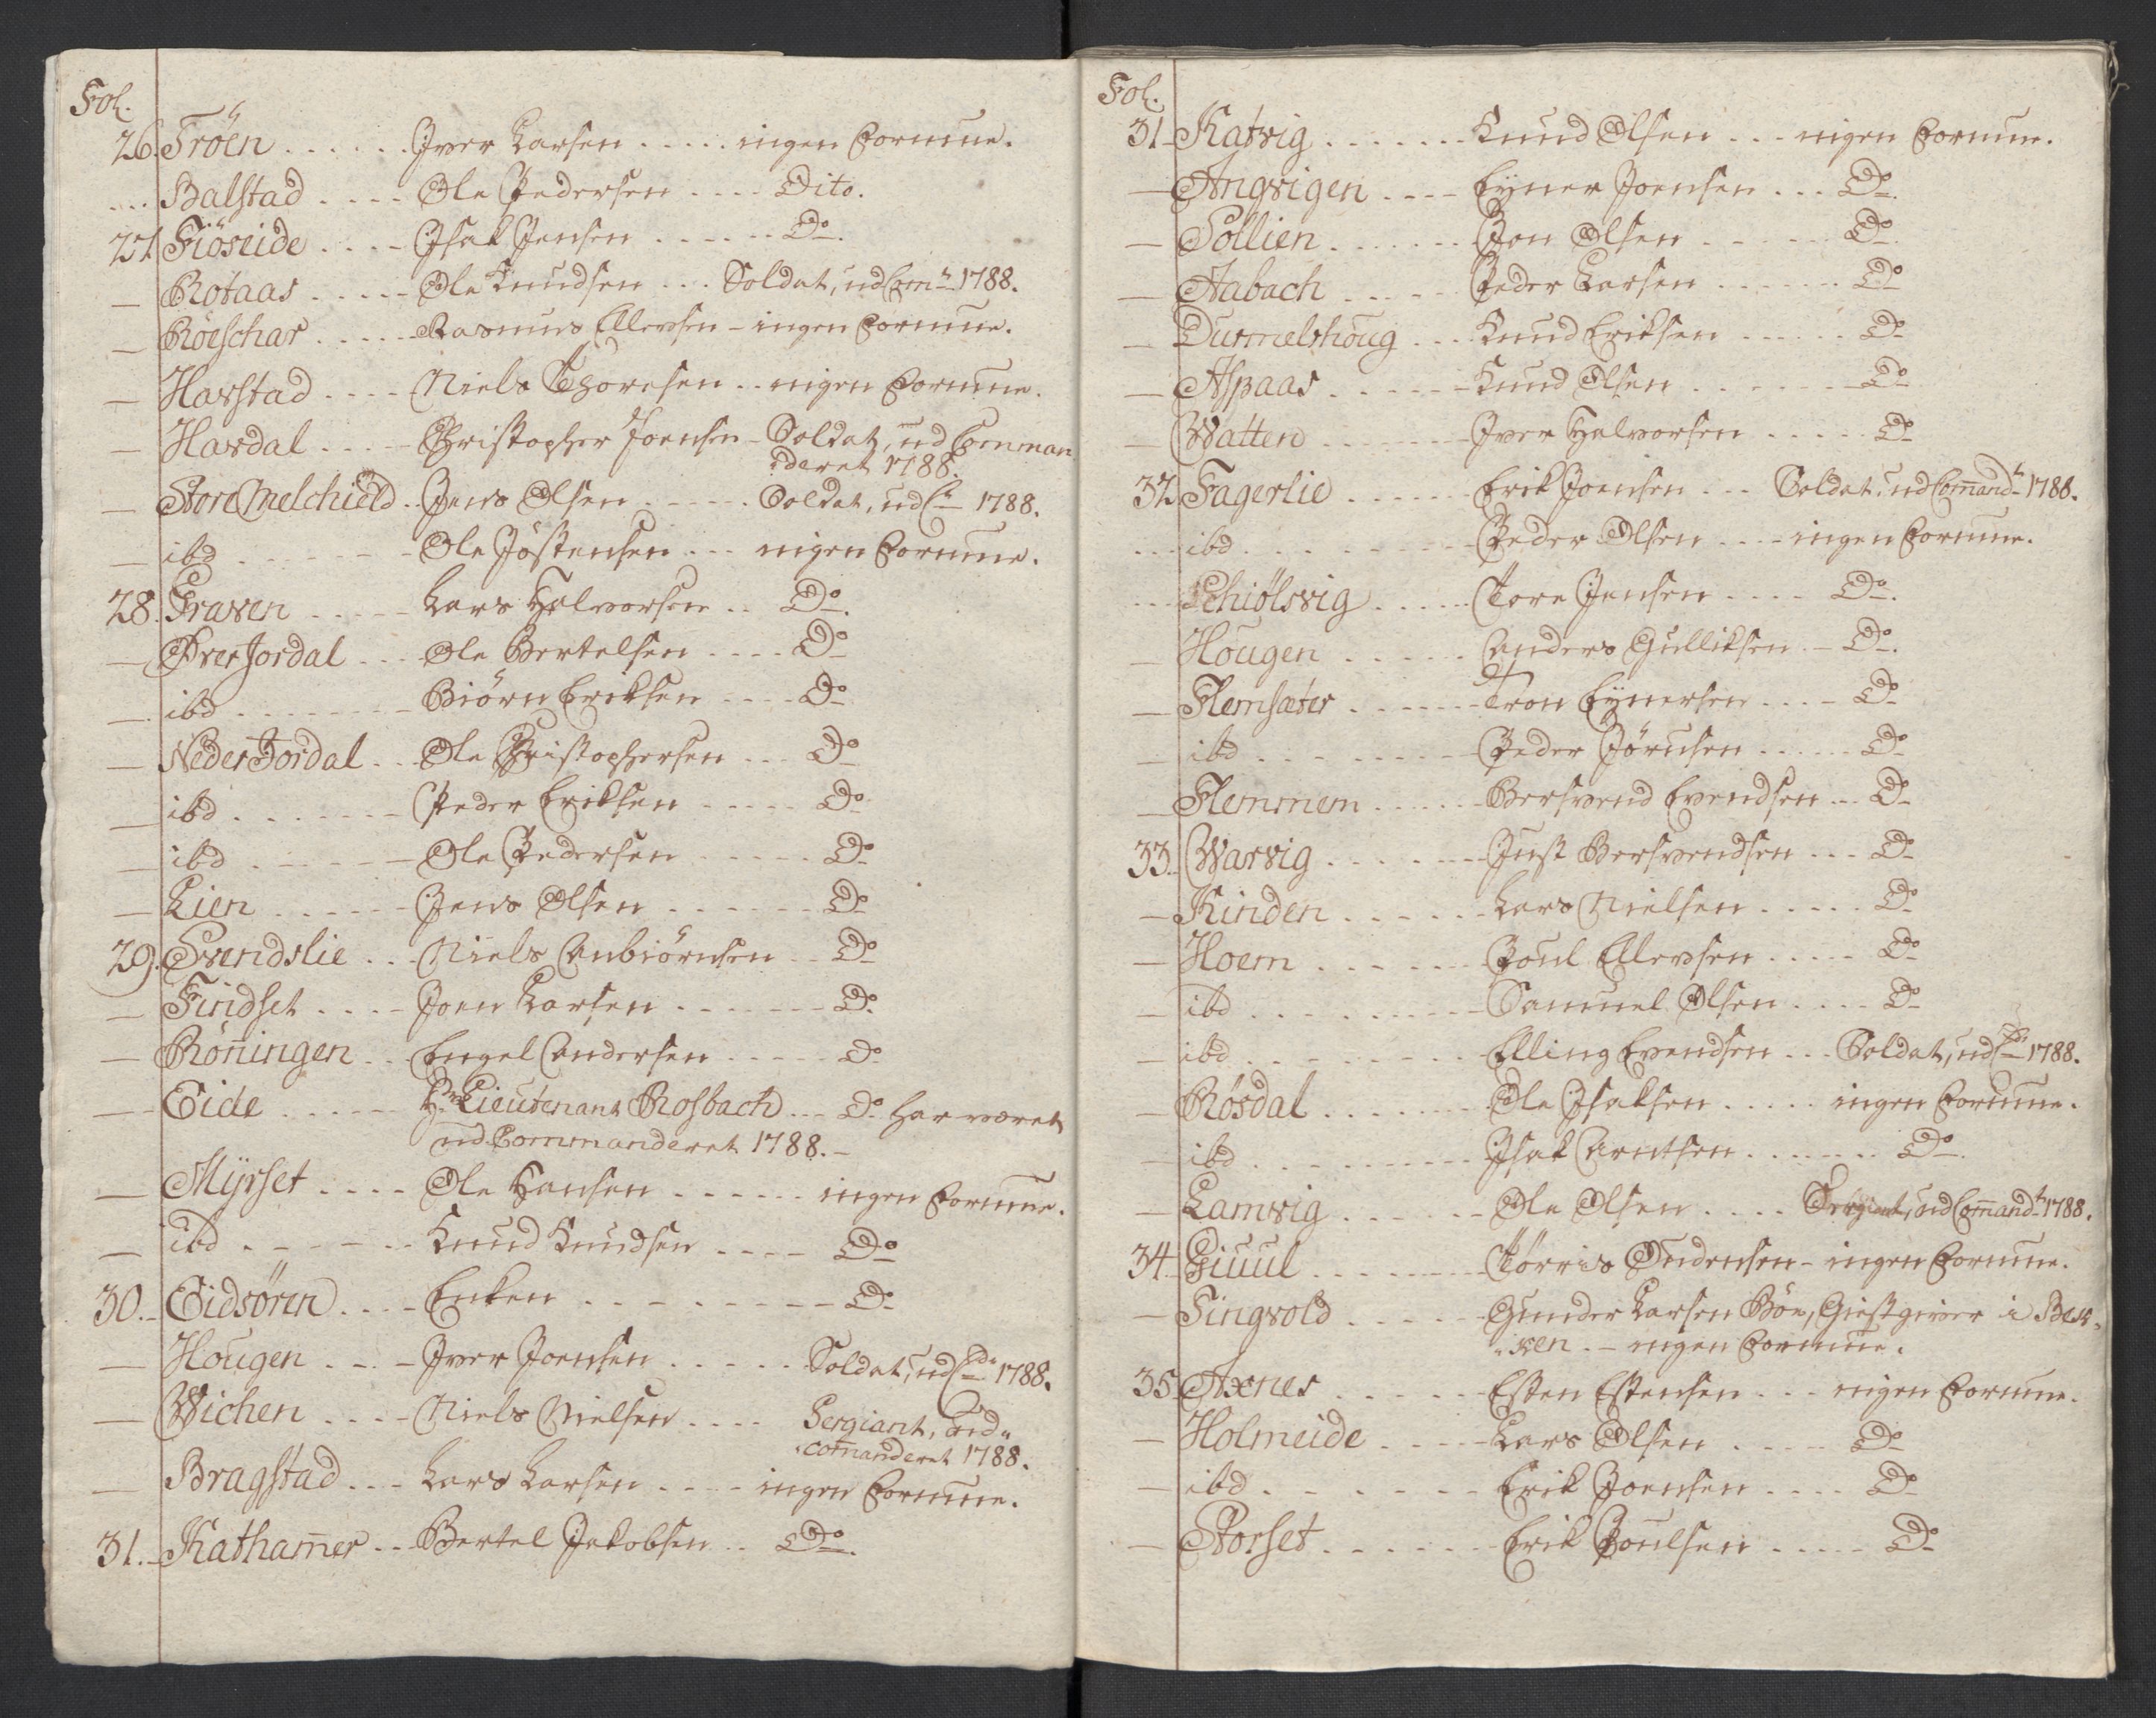 Fol.
26. Tröen . . . . . . Iver Larsen . . . . . ingen Formue.
. . . Balstad . . . . Ole Pedersen . . . . Dito.
27. Fiöseide . . . . Isak Jensen . . . . . . Do.
— Rotaas . . . . . Ole Knudsen . . . Soldat, ud Com 1788.
— Röeschar . . . . . Rasmus Ellevsen - ingen Formue.
— Havstad . . . . Niels Thoresen . . ingen Formue.
— Havdal . . . . Christopher Joensen - Soldat, ud Comman
deret 1788.
— Store Melchield . . Jens Olsen . . . . . Soldat, ud C 1788.
— ibd . . . . . . Ole Jöstensen . . . ingen Formue.
28. Graven . . . . . Lars Halvorsen . . Do.
— Över Jordal . . . Ole Bertelsen . . . . Do
— ibd . . . . . . . Biörn Eriksen . . . . Do
— Neder Jordal . . . Ole Christophersen . . . Do
— ibd . . . . . . . Peder Eriksen . . . . . Do
— ibd . . . . . . . Ole Pedersen . . . . . Do
— Lien . . . . . . Jens Olsen . . . . . . . Do
29. Svendslie . . . Niels Anbiörnsen . . Do
— Tiridset . . . . Joen Larsen . . . . . . . Do
— Röñingen . . . Engel Andersen . . . . . Do
— Eide . . . . . . Hr Lieutenant Rosbach . . . Do har været
ud Commanderet 1788. -
— Mÿrset . . . . Ole Hansen . . . . . . ingen Formue.
— ibd . . . . . . Knud Knudsen . . . . Do
30. Eidsören . . . . Enken . . . . . . . . . Do
— Hougen . . . . Iver Joensen . . . . . Soldat, ud Cde 1788.
— Wichen . . . . Niels Nielsen . . . . Sergiant, ud„
„com̃anderet 1788.
— Bragstad . . . Lars Larsen . . . . ingen Formue.
31. Katham̃er . . Bertel Jakobsen . . Do.
Fol.
31. Katvig . . . . . . . Knud Olsen . . . ingen Formue.
— Angvigen . . . . Eÿner Joensen . . . Do.
— Sollien . . . . . . . Jon Olsen . . . . . . Do
— Aabach . . . . . Peder Larsen . . . . . . Do
— Durmelshoug . . . Knud Eriksen . . . . . . Do
— Aspaas . . . . . . Knud Olsen . . . . . . . Do
— Watten . . . . . . . Iver Halvorsen . . . . . Do
32. Fagerlie . . . . . . Erik Joensen . . . Soldat, ud Com̃and 1788.
. . . ibd . . . . . . . . . Peder Olsen . . . . ingen Formue.
. . . Schiölsvig . . . . . Tore Jensen . . . . Do.
— Hougen . . . . . Anders Gulliksen . - Do.
— Flemsæter . . . . . . Tron Eÿnersen . . . . Do
— ibd . . . . . . . . . Peder Jörnsen . . . . . Do
— Flemmem . . . . . . Bersvend Evendsen . . . Do
33. Warvig . . . . . . . Just Bersvendsen . . . Do
— Kinden . . . . . . Lars Nielsen . . . . . Do
— Hoem . . . . . . . Poul Ellevsen . . . . . Do
— ibd . . . . . . . . . Samuel Olsen . . . . Do
— ibd . . . . . . . . . Elling Evendsen . . . Soldat, ud Cde 1788.
— Rösdal . . . . . . . Ole Isaksen . . . . . ingen Formue.
— ibd . . . . . . . . . Isak Arntsen . . . . . . Do.
— Lamvig . . . . . . Ole Olsen . . . . Sergiant, ud Com̃andt 1788.
34. Giuul . . . . . . . . Törris Oudensen - ingen Formue.
— Tingvold . . . . . Gunder Larsen Böe, Giestgiver i Bek„
„ken. — ingen Formue.
35. Axnes . . . . . . . Esten Estensen . . . ingen Formue.
— Holmeide . . . . . Lars Olsen . . . . . Do
— ibd . . . . . . . Erik Joensen . . . . Do
— Storset . . . . . . Erik Poulsen . . . . . Do